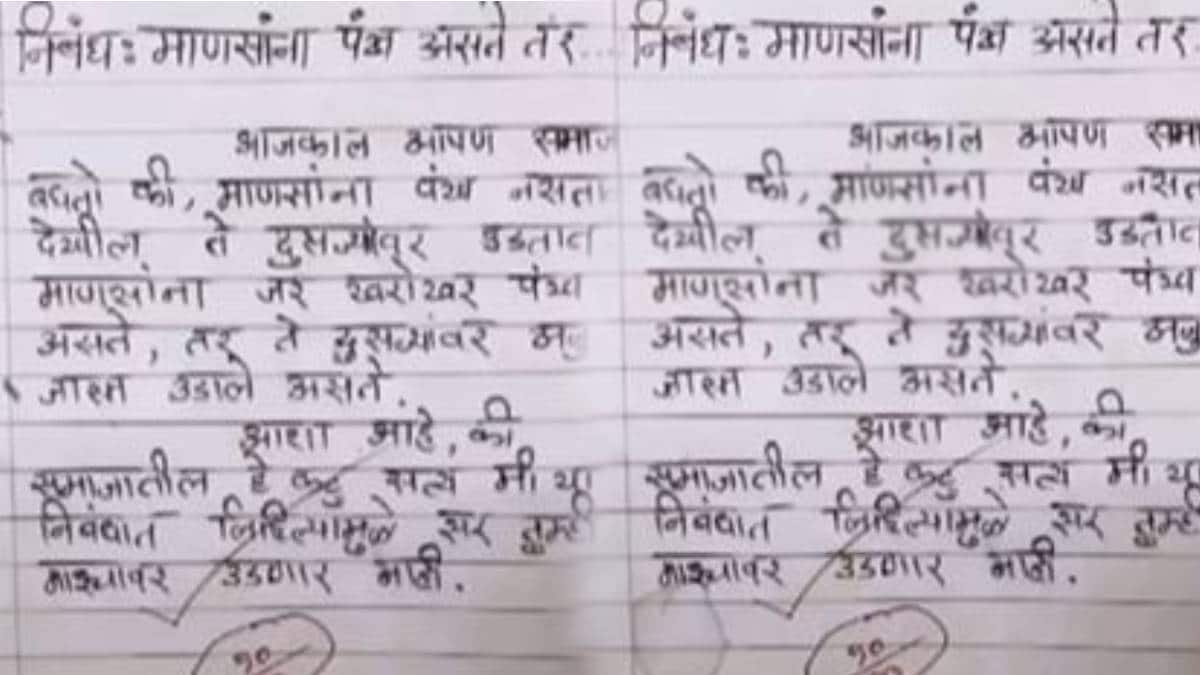 निबंध: माणसांना पंख असते तर...
आजकाल आपण समाज
बघतो की, माणसांना पंख नसता
देखील ते दुसऱ्यांवर उडतात
माणसांना जर खरोखर पंख
असते, तर ते दुसऱ्यांवर
जास्त उडाले असते.
आशा आहे, की
समाजातील हे कटु सत्य मी या
निबंधात लिहिल्यामुळे सर तुम्ही
माझ्यावर उडणार नाही.
१०
निबंध: माणसांना पंख असते तर
आजकाल आपण समा
बघतो की, माणसांना पंख नसत
देखील ते दुसऱ्यांवर उडतात
माणसांना जर खरोखर पंख
असते, तर ते दुसऱ्यांवर
जास्त उडाले असते.
आशा आहे, की
समाजातील हे कटु सत्य मी या
निबंधात लिहिल्यामुळे सर तुम्ही
माझ्यावर उडणार नाही.
१०